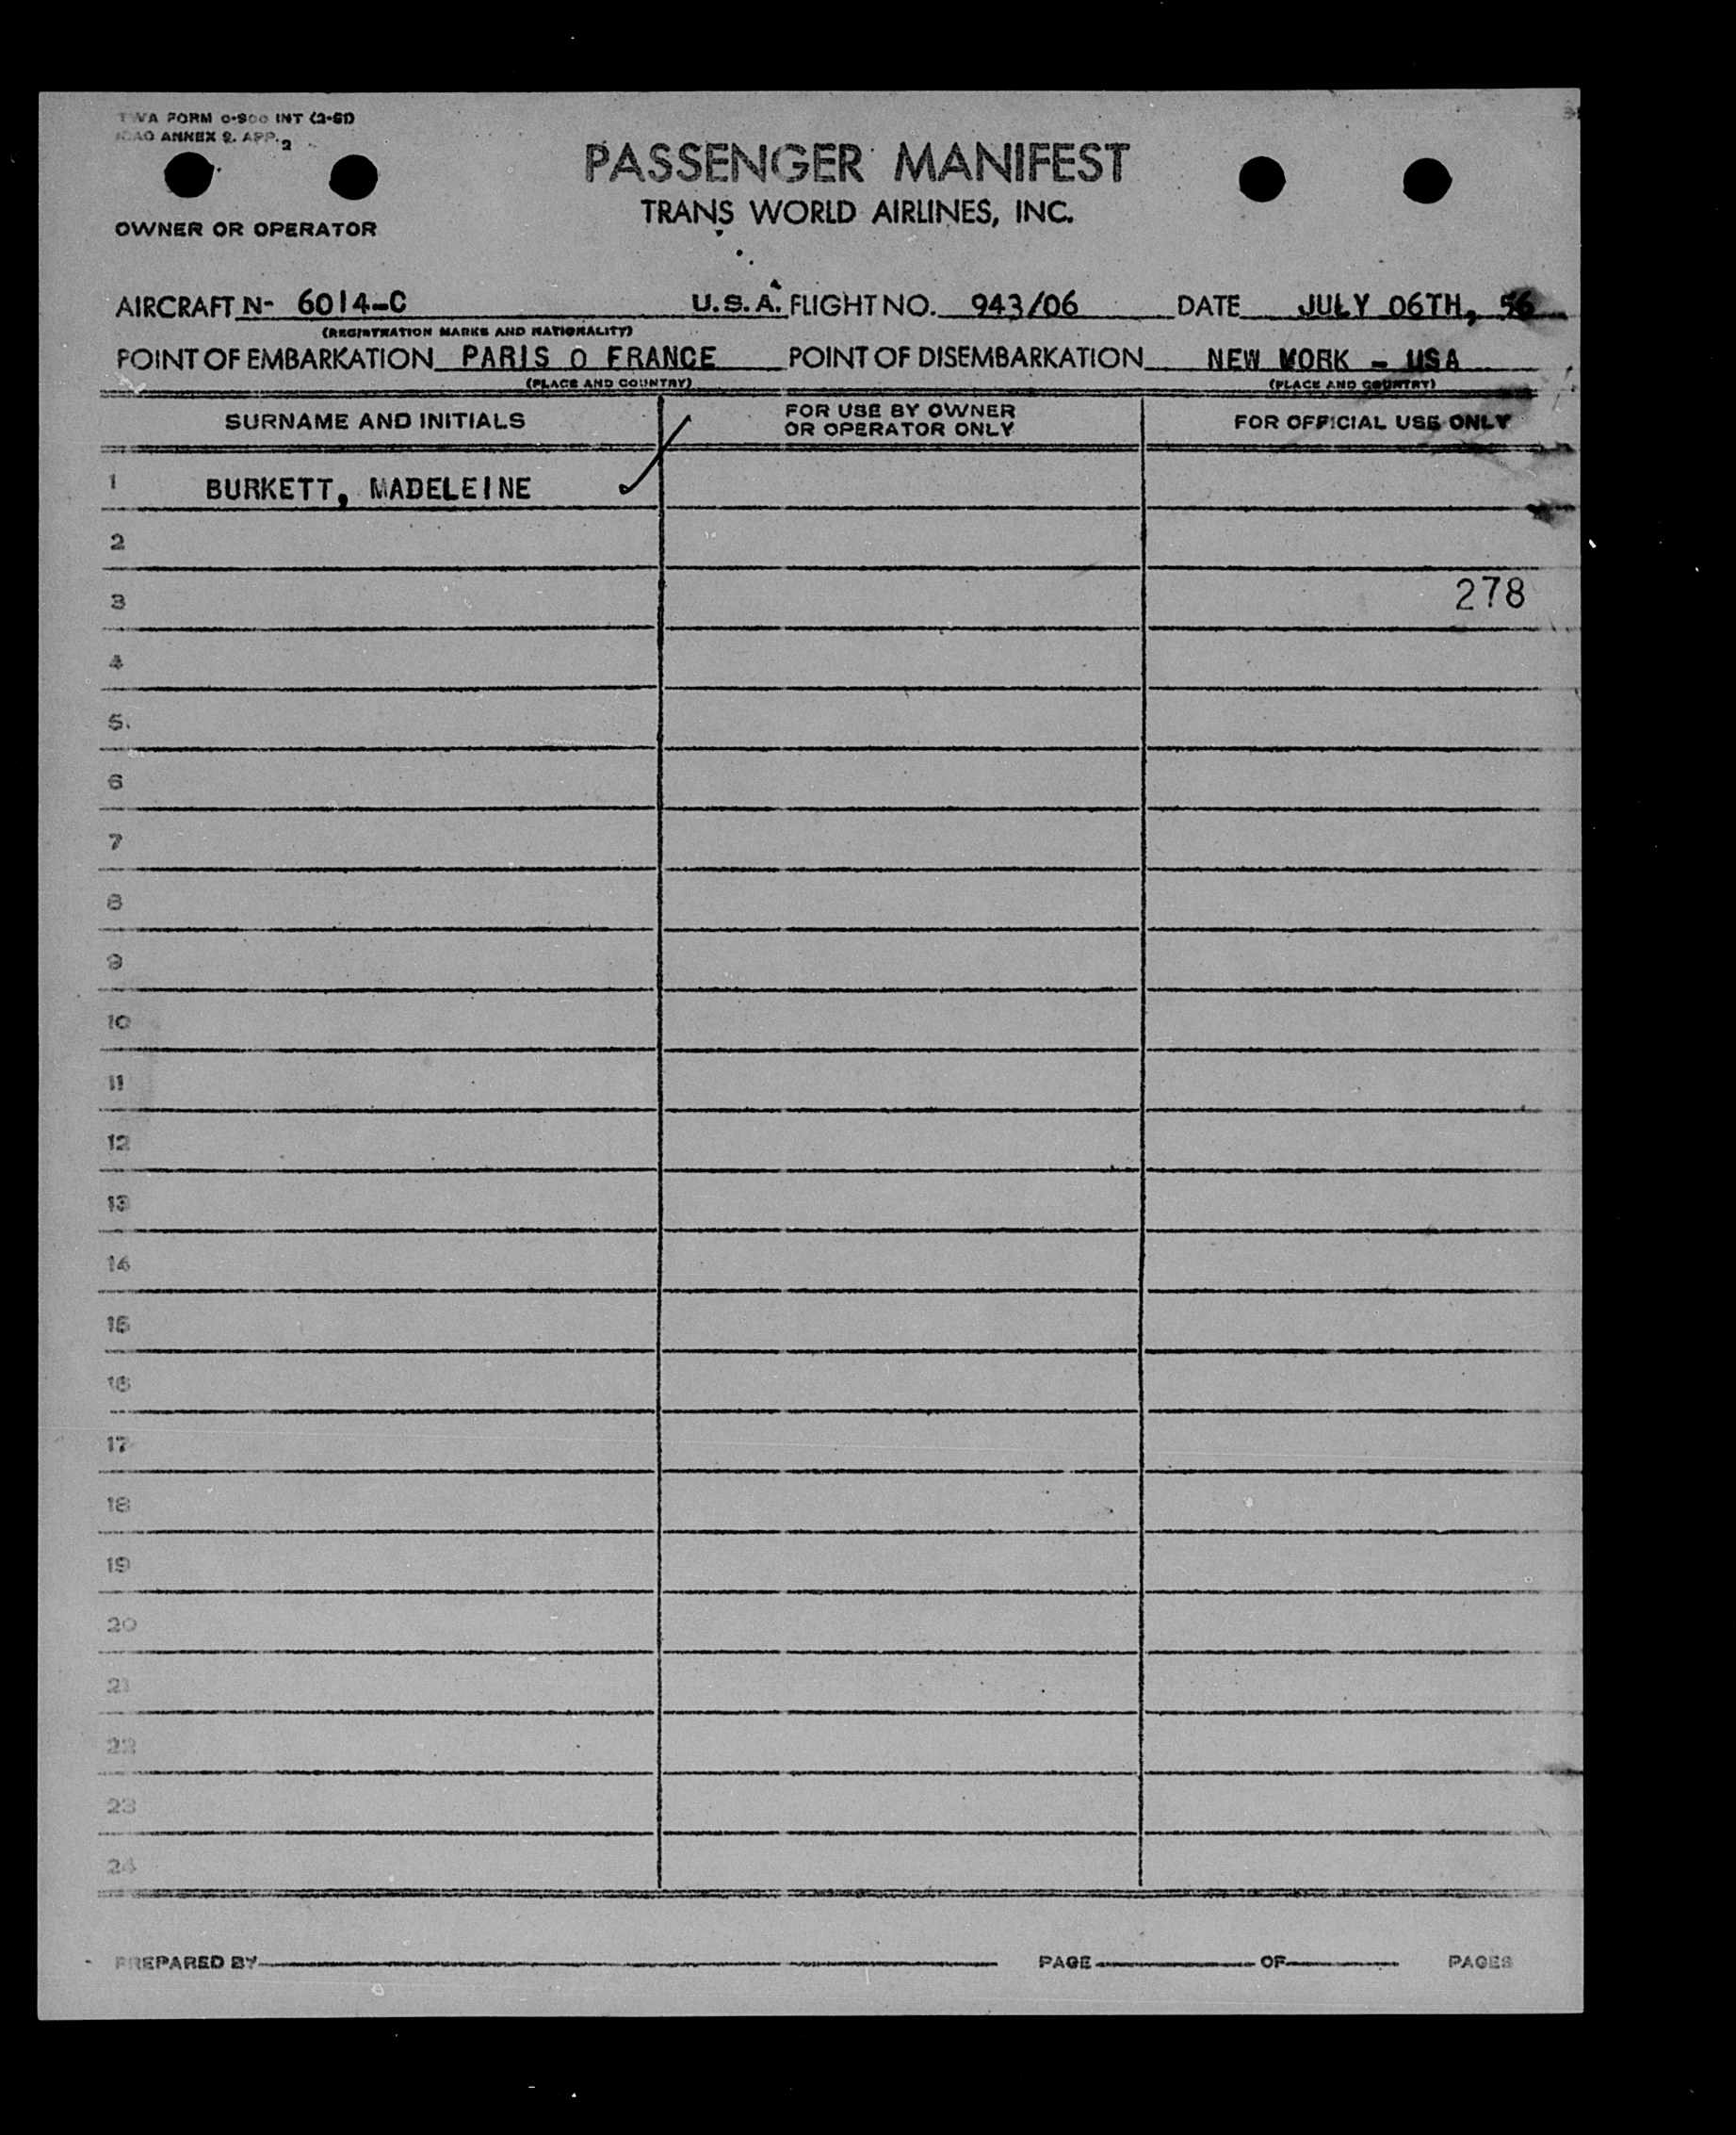 TWA FORM 0-900 INT (2-51)
ICAO ANNEX 9. APP. 2
PASSENGER MANIFEST
TRANS WORLD AIRLINES, INC.
OWNER OR OPERATOR
AIRCRAFT N- 6014-C U.S.A. FLIGHT NO. 943/06 DATE JULY 06TH, 56
(REGISTRATION MARKS AND NATIONALITY)
POINT OF EMBARKATION PARIS O FRANCE POINT OF DISEMBARKATION NEW YORK - USA
(PLACE AND COUNTRY) (PLACE AND COUNTRY)
SURNAME AND INITIALS FOR USE BY OWNER OR OPERATOR ONLY FOR OFFICIAL USE ONLY
1 BURKETT, MADELEINE
2
3 278
4
5.
6
7
8
9
10
11
12
13
14
15
16
17
18
19
20
21
22
23
24
PREPARED BY PAGE OF PAGES